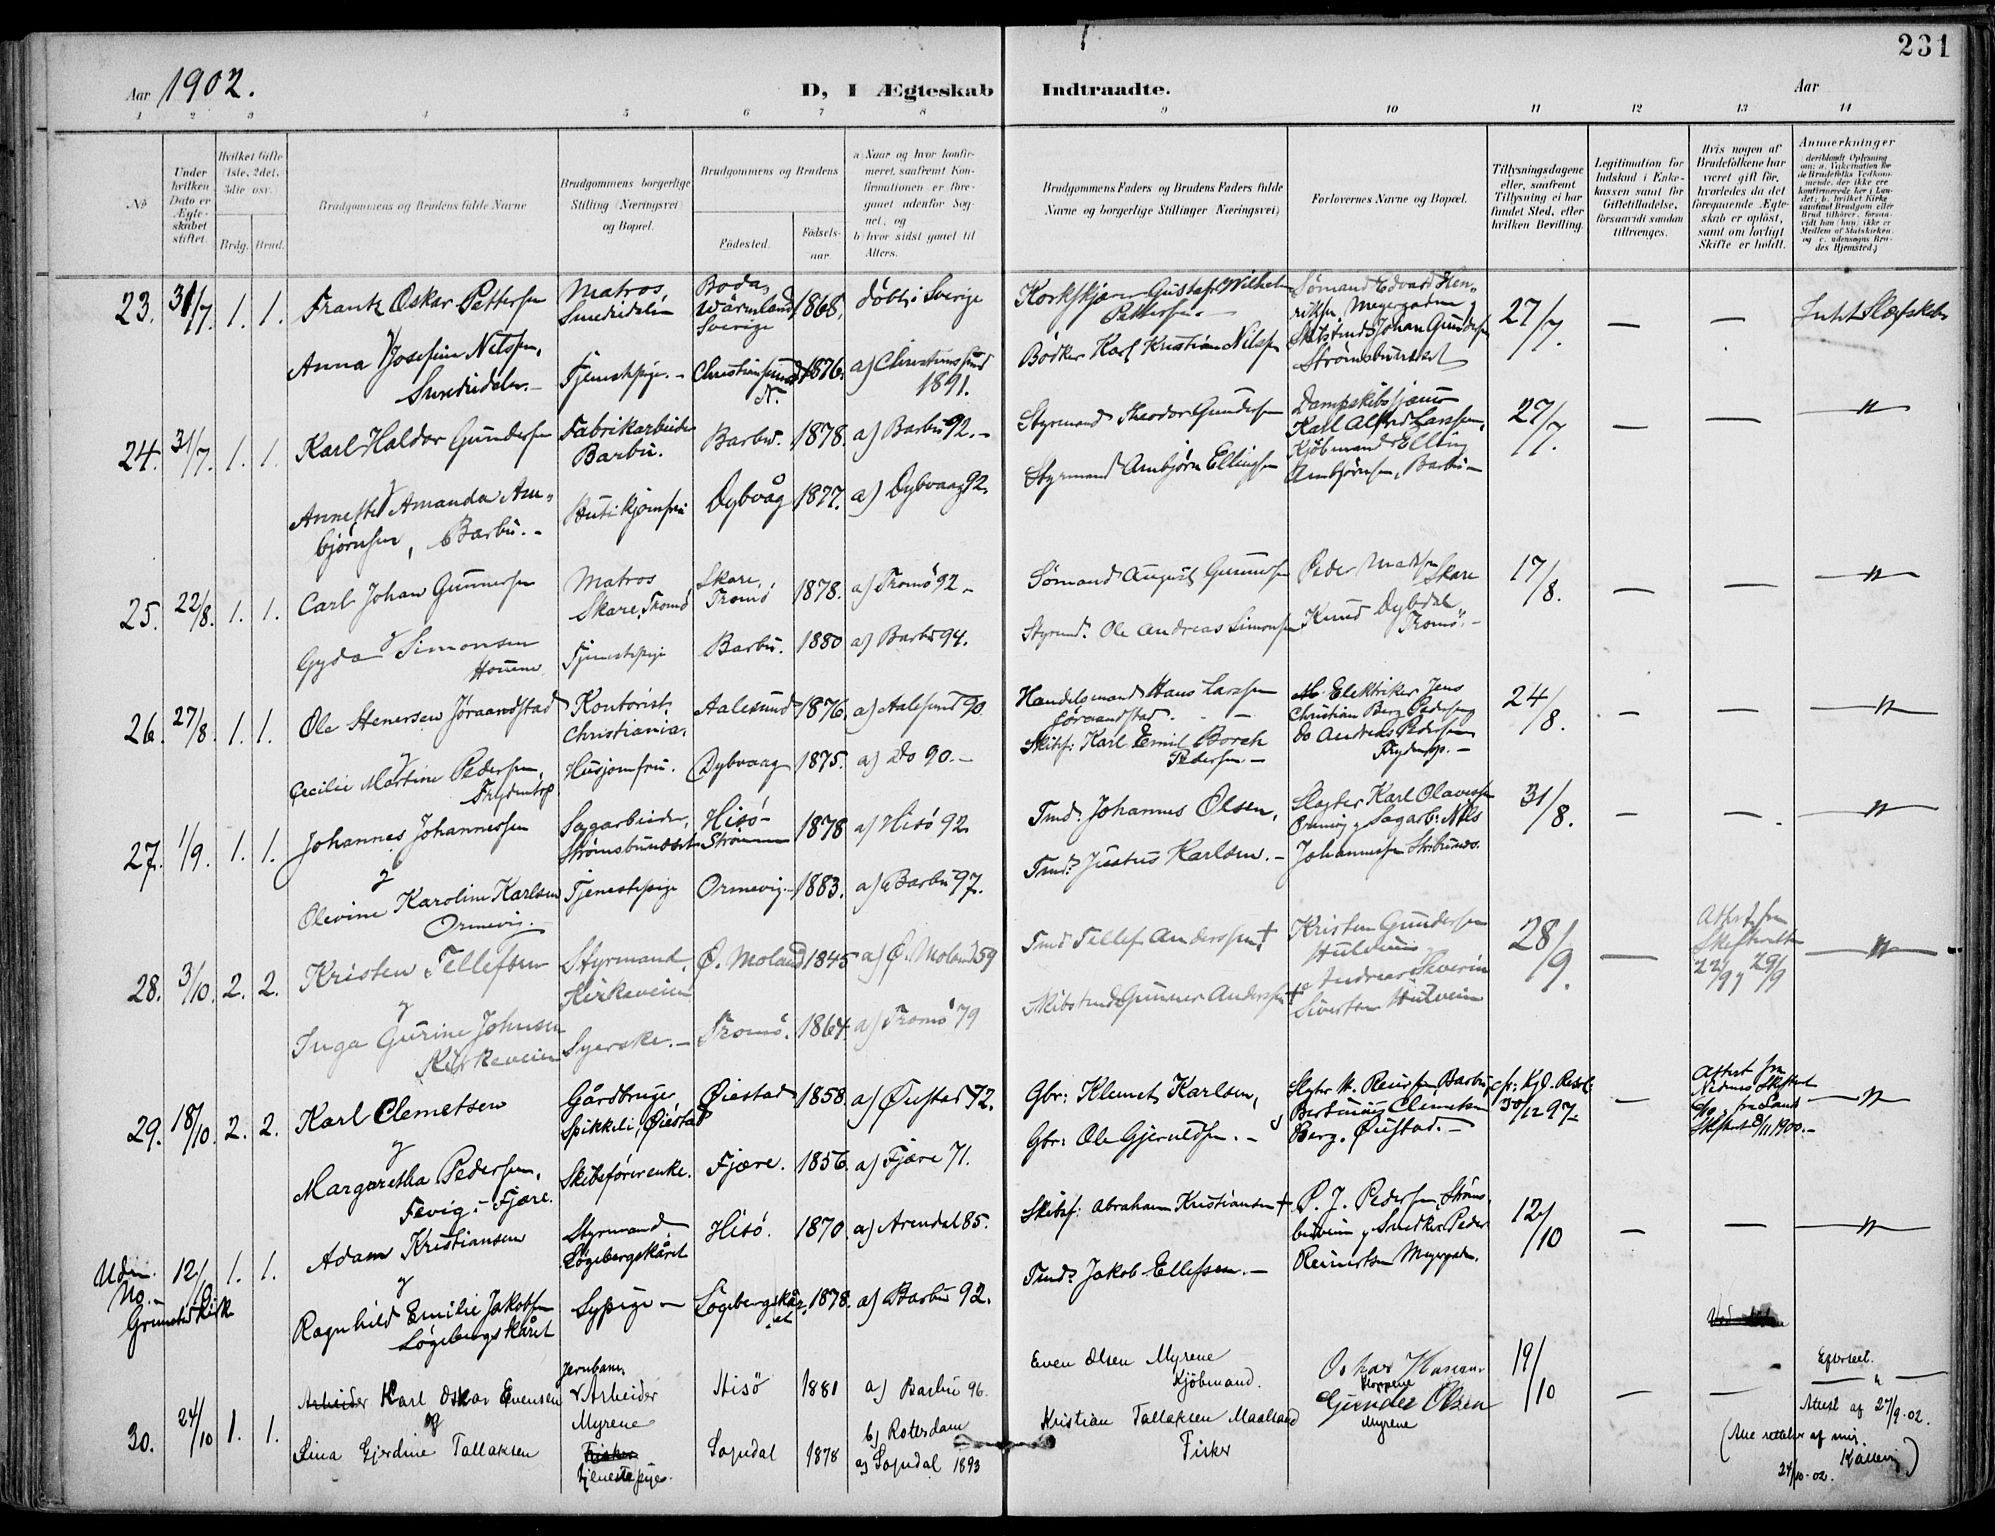 231
Aar 1902.
D, I Ægteskab Indtraadte.
Aar
1 2 3 4 5 6 7 8 9 10 11 12 13 14
No
Under hvilken Dato er Ægteskabet stiftet.
Hvilket Gifte (1ste, 2det, 3die osv.)
Brdg. Brud.
Brudgommens og Brudens fulde Navne
Brudgommens borgerlige Stilling (Næringsvei) og Bopæl.
Brudgommens og Brudens
Fødested. Fødsels-aar.
a) Naar og hvor konfirmeret, saafremt Konfirmationen er foregaaet udenfor Sognet, og
b) hvor sidst gaaet til Alters.
Brudgommens Faders og Brudens Faders fulde Navne og borgerlige Stillinger (Næringsvei)
Forlovernes Navne og Bopæl.
Tillysningsdagene eller, saafremt Tillysning ei har fundet Sted, efter hvilken Bevilling.
Legitimation for Indskud i Enkekassen samt for Giftetilladelse, forsaavidt saadan tiltrænges.
Hvis nogen af Brudefolkene har været gift før, hvorledes da det foregaaende Ægteskab er opløst, samt om lovligt Skifte er holdt.
Anmerkninger
23. 31/7. 1. 1. Frantz Oskar Pettersen
Matros
Boda, Wärmland Sverige 1868. døbt i Sverige
Gustaf Wilhelm Pettersen.
Sømand Edvard Henriksen, Meyergaden
Johan Gundersen
27/7. — —
Anna Josefine Nilsen,
Tjenestepige. - Christiansund N. 1876. a) Christiansund 1891.
Bødker Karl Kristian Nilsen
24. 31/7. 1. 1. Karl Haldor Gundersen
Fabrikarbeider Barbu. Barbu. 1878. a) Barbu 92. -
Styrmand Theodor Gundersen
Karl Alfred Larssen,
Kjøbmand Elling Arnbjørnsen, Barbu -
27/7. — — "
Annette Amanda Arnbjørnsen, Barbu. -
Dybvåg 1877. a) Dybvaag 92.
Styrmand Arnbjørn Ellingsen
25. 22/8. 1. 1. Carl Johan Gunnersen
Matros Skare, Tromø
Skare, Tromø 1878. a) Tromø 92 -
Sømand August Gunnersen
Peder Madsen Skare
17/8. — — "
Gyda Simonsen
Tjenestepige Barbu. 1880 a) Barbu 94.
Styrmd. Ole Andreas Simonsen
Knud Dybdal Tromø. -
26. 27/8. 1. 1. Ole Stenersen Jøraandstad
Kontorist, Christiania. Aalesund 1876. a) Aalesund 90.
Handelsmand Hans Larssen Jøraandstad.
Elektriker Jens Christian Berg Pedersen
do Andreas Pedersen
24/8. — — "
Cecilie Martine Pedersen,
Husjomfru. Dybvaag 1875. a) Do 90. -
Skibsf: Karl Emil Borch Pedersen. -
27. 1/9. 1. 1. Johannes Johannessen
Sagarbeider, Strømsbuneset
Hisø- 1878 a) Hisø 92.
Tmd: Johannes Olsen,
Slagter Karl Olavessen
Ormevig y Sagarb: Nils Johannessen
31/8. — — "
y
Olevine Karoline Karlsen Ormevig.
Tjenestepige Ormevig. - 1883. a) Barbu 97.
Tmd? Justus Karlsen. -
28. 3/10. 2. 2. Kristen Tellefsen
Styrmand, Kirkeveien Ø. Moland 1845 a) Ø. Moland 59
Tmd Tellef Anderssen †
Kristen Gundersen
Andreas Severin Sivertsen
28/9. — "
y
Inga Gurine Johnsen Kirkeveien
Syerske. - Tromø. 1864. a) Tromø 79
Gunner Anderssen †
29. 18/10. 2. 2. Karl Clemetsen
Gårdbruger Spikkeli, Øiestad
Øiestad 1858. a) Øiestad 72.
Gbr: Klemet Karlsen,
Berg. Øiestad. -
30/12 97. —
8/11 1900. -
"
y
Margaretha Pedersen, Fevig. - Fjære.
Skibsførerenke. Fjære. 1856. a) Fjære 71.
Gbr: Ole Gjeruldsen. -
Uden No. - Grimstad Kirk
12/10 1. 1. Adam Kristiansen
Styrmand Løgebergskåret
Hisø. 1870. a) Arendal 85.
Skibsf: Abraham Kristiansen †
P. J. Pedersen,
y Snedker Peder Reinertsen Meyergaden.
12/10 — — "
y
Ragnhild Emilie Jakobsen Løgebergskåret
Sypige - Løgebergskåret 1878. a) Barbu 92.
Tmd? Jakob Ellefsen. -
30. 24/10 1. 1. Arbeider Karl Oskar Evensen
Jernbane Arbeider Myrene
Hisø 1881 a) Barbu 96.
b) Rotterdam
Even Olsen Myrene Kjøbmand.
Oskar Hansen
Gunder Olsen Myrene
19/10 — —
Attest af 27/9.02.
og
Sina Gjerdine Tallaksen
tjenestepige. Sogndal 1878 a) Sogndal 1893
Kristian Tallaksen Maaland Fisker
(Alle rettelser af mig.
24/10.02.